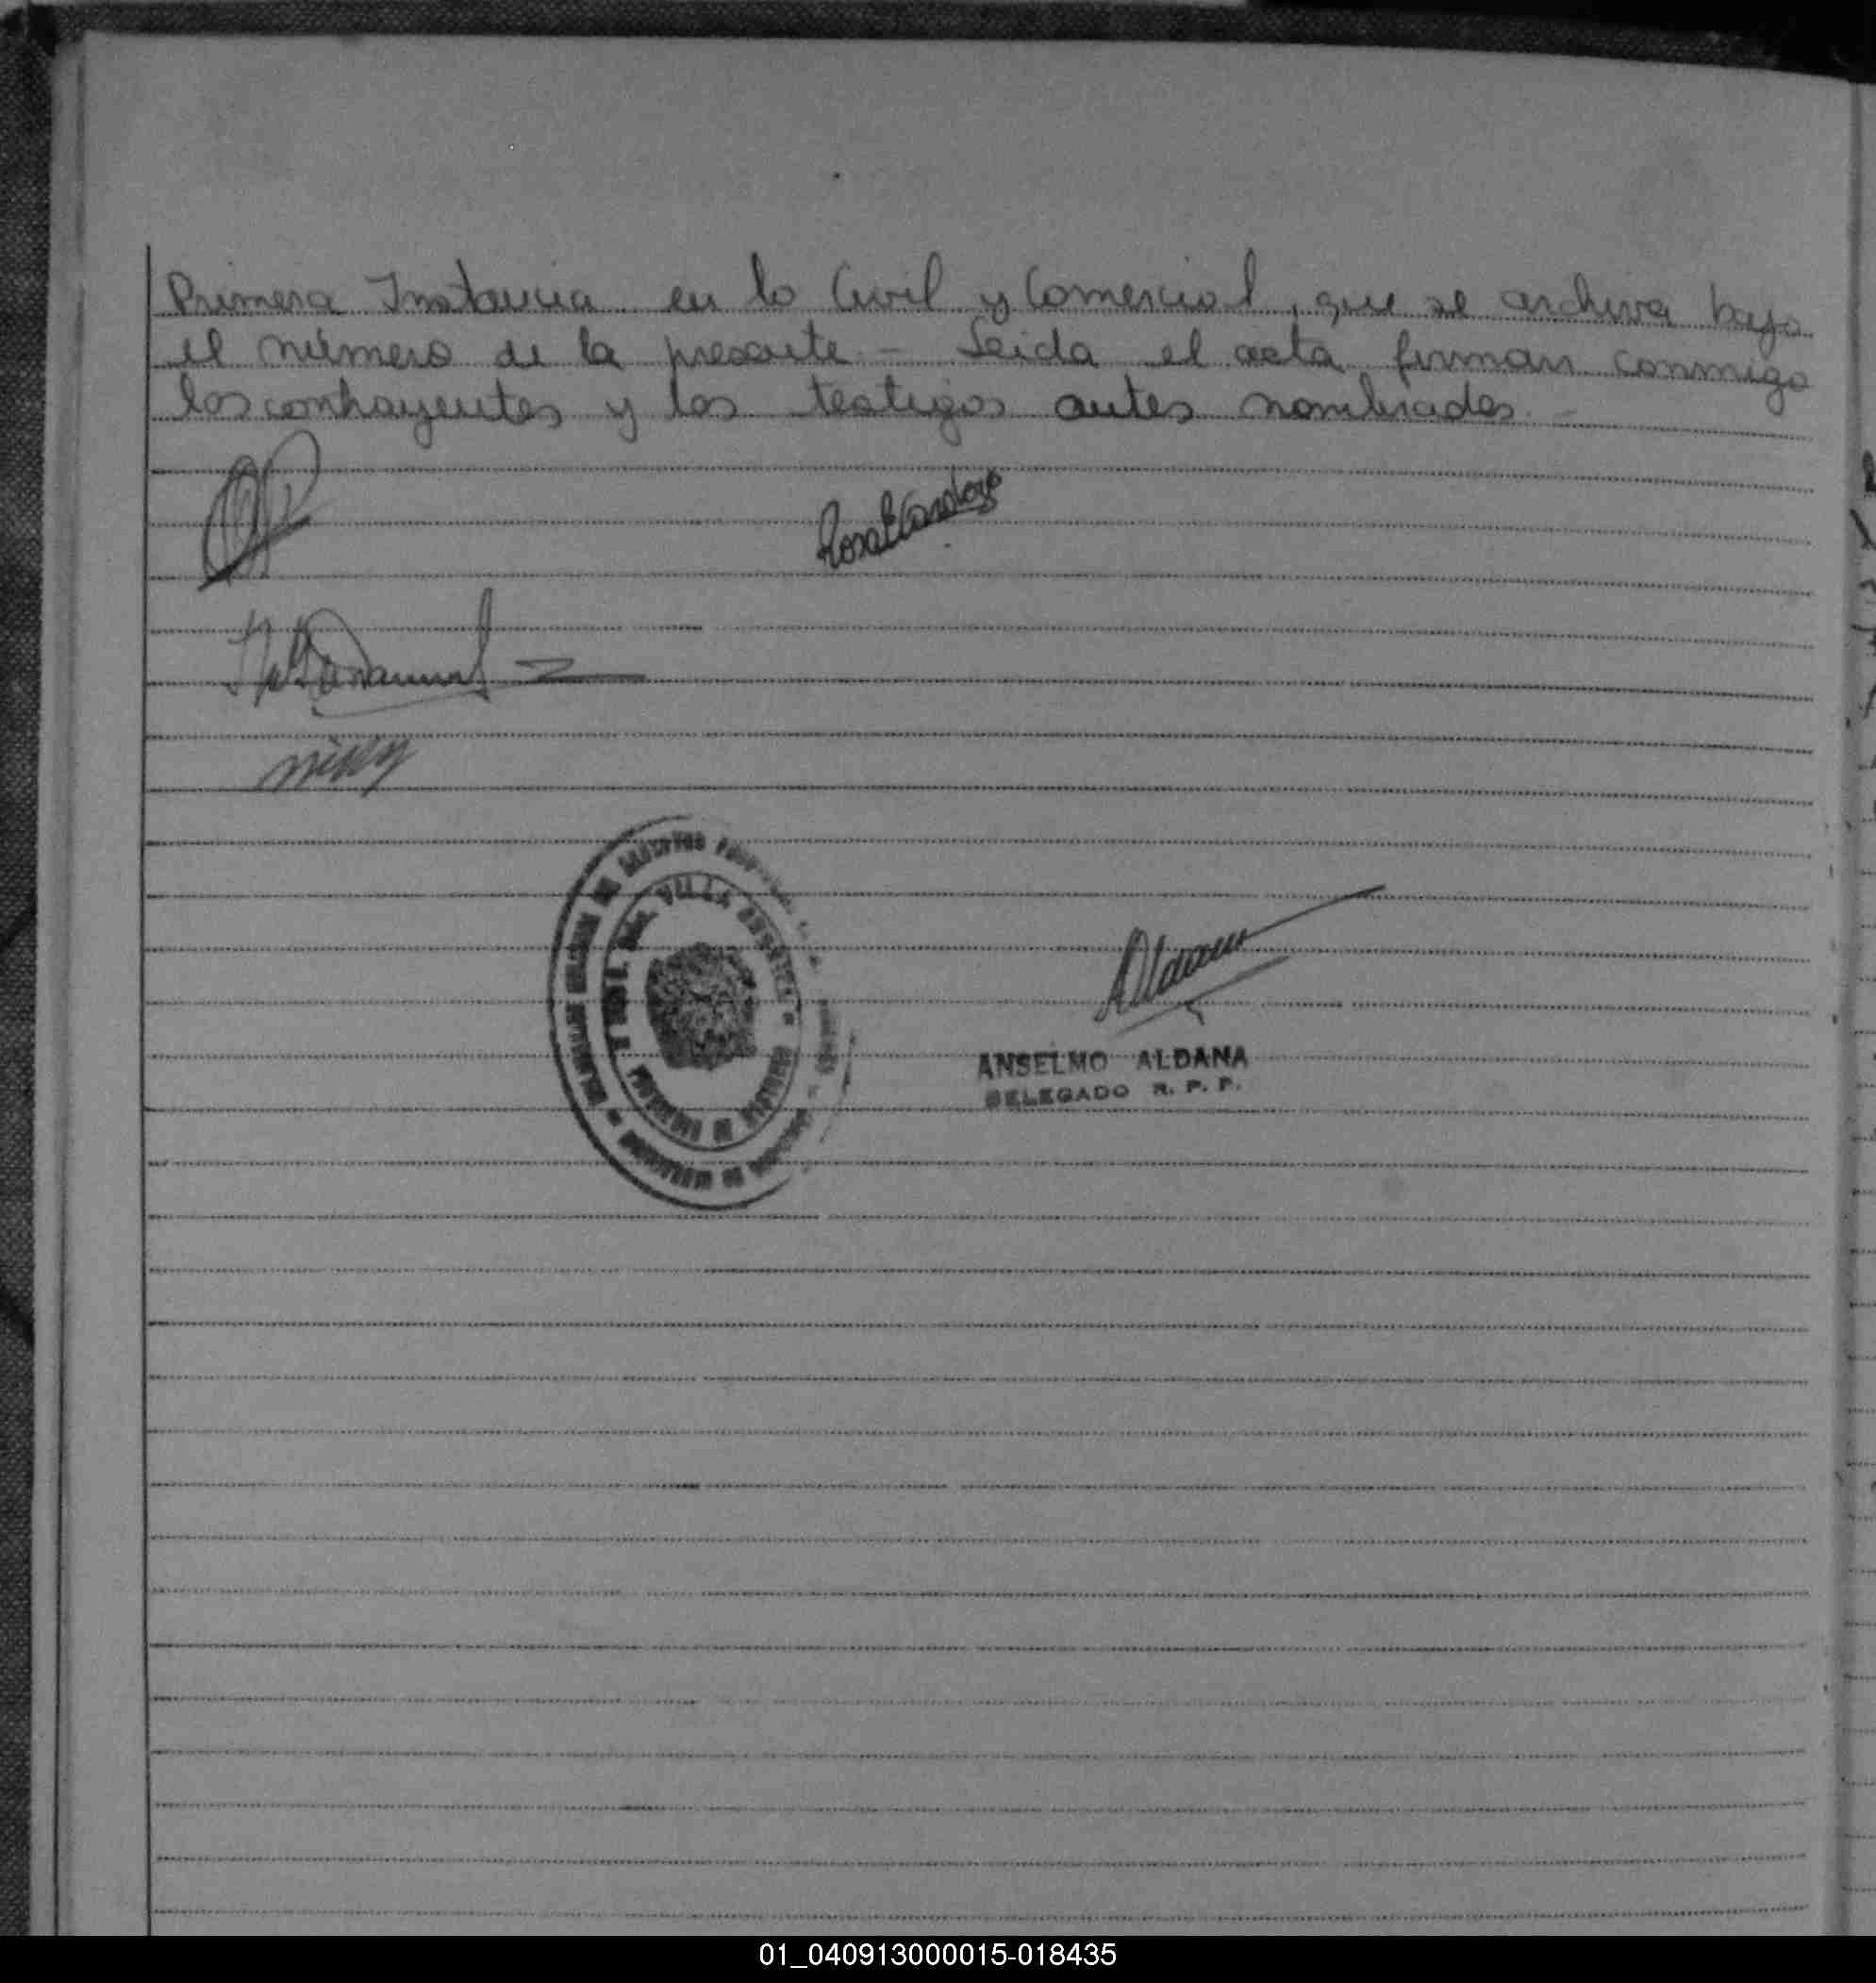 Primera Instancia en lo Civil y Comercial, que se archiva bajo
el número de la presente - Leida el acta, firman conmigo
los contrayentes y los testigos antes nombrados. -
Rosa E Cardozo
VILLA
ANSELMO ALDANA
DELEGADO R. P. P.
01_040913000015-018435